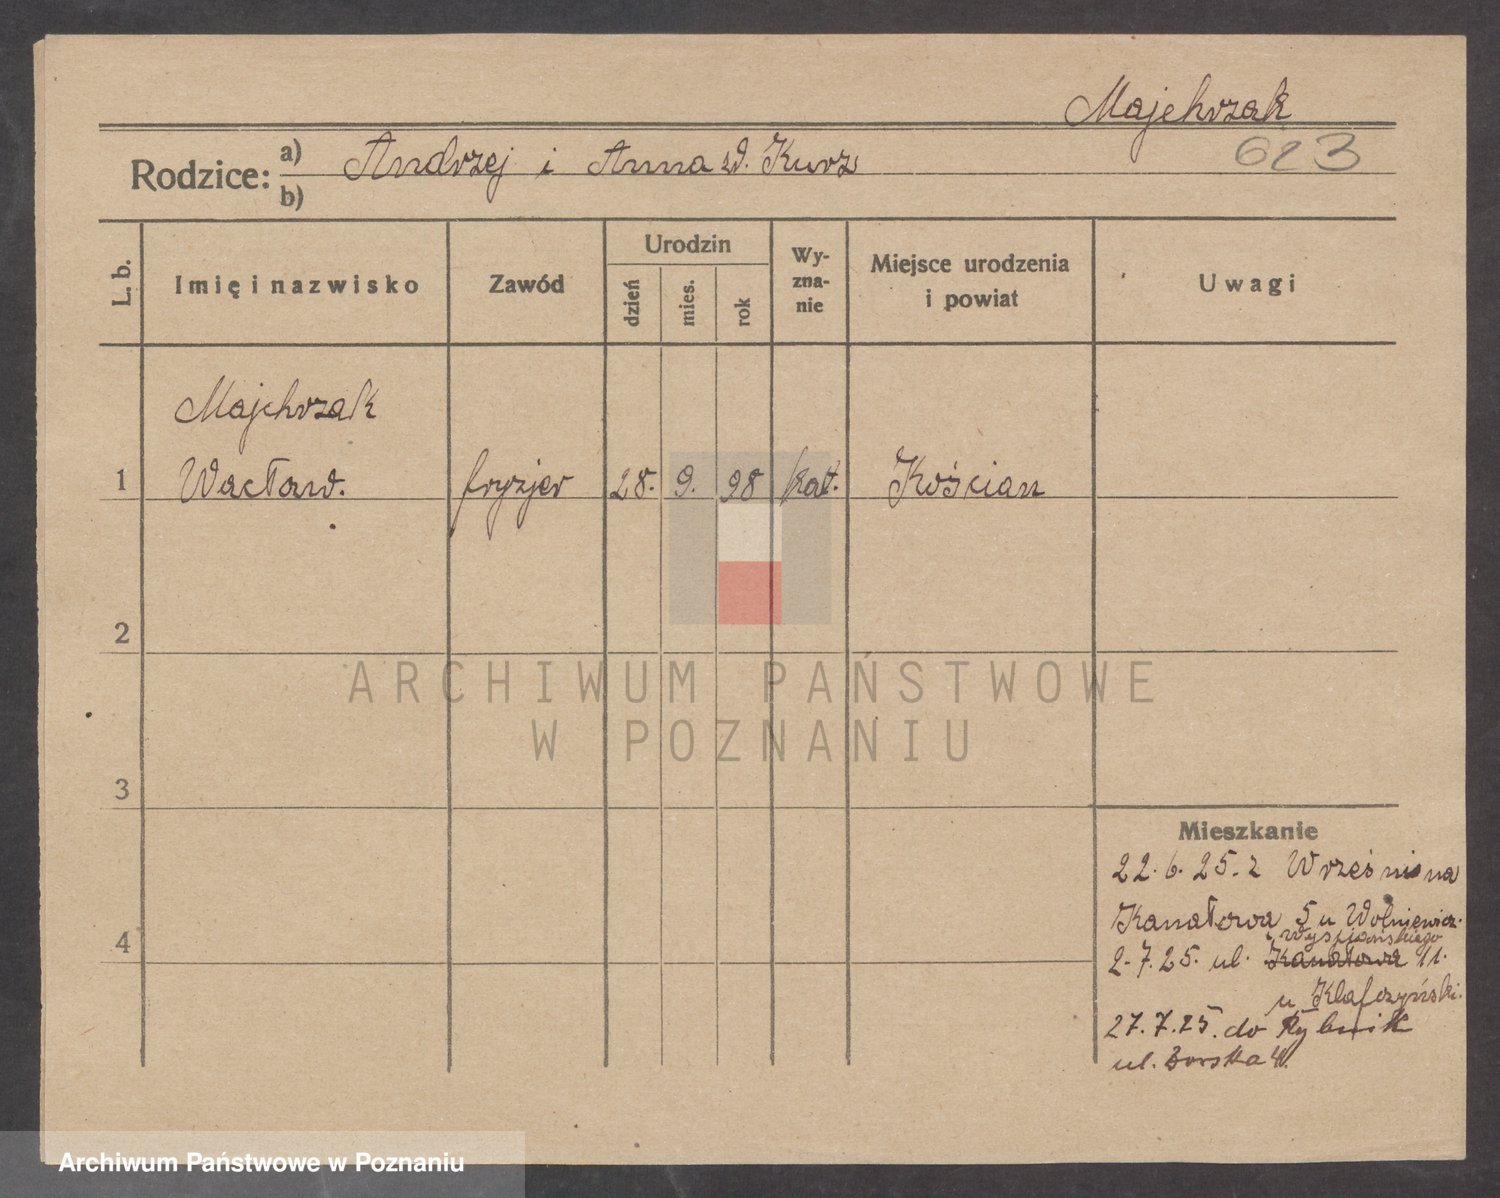 Majchrzak
623
Rodzice: a) Andrzej i Anna zd. Kurz
b)
L. b.
Imię i nazwisko
Zawód
Urodzin
dzień
mies.
rok
Wy-
zna-
nie
Miejsce urodzenia
i powiat
Uwagi
Majchrzak
1 Wacław. fryzjer 28. 9. 98 kat. Kościan
2
3
4
ARCHIWUM PAŃSTWOWE
W POZNANIU
Mieszkanie
22. 6. 25. z Wrześni na
Kanałowa 5 u Wolniewicz.
Wyspiańskiego
2. 7. 25. ul. Kanałowa 11.
u Klafczyński.
27. 7. 25. do Rybnik
ul.
Archiwum Państwowe w Poznaniu